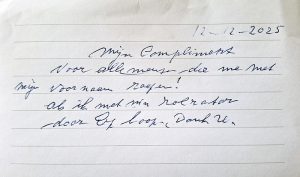 12-12-2025
Mijn Compliment
Voor alle mensen die me met
mijn voornaam roepen!
als ik met mijn rolrator
door loop. Dank U.